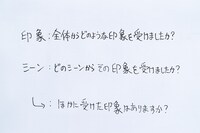 印象:全体からどのような印象を受けましたか?
シーン:どのシーンからその印象を受けましたか?
↳:ほかに受けた印象はありますか?